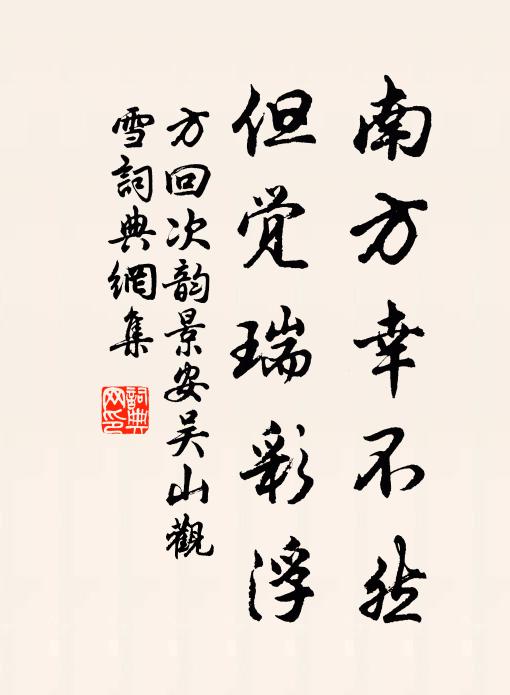 南方幸不然
但觉瑞彩浮
方回次韵景安吴山觀
雪詞典網集
詞典
网印